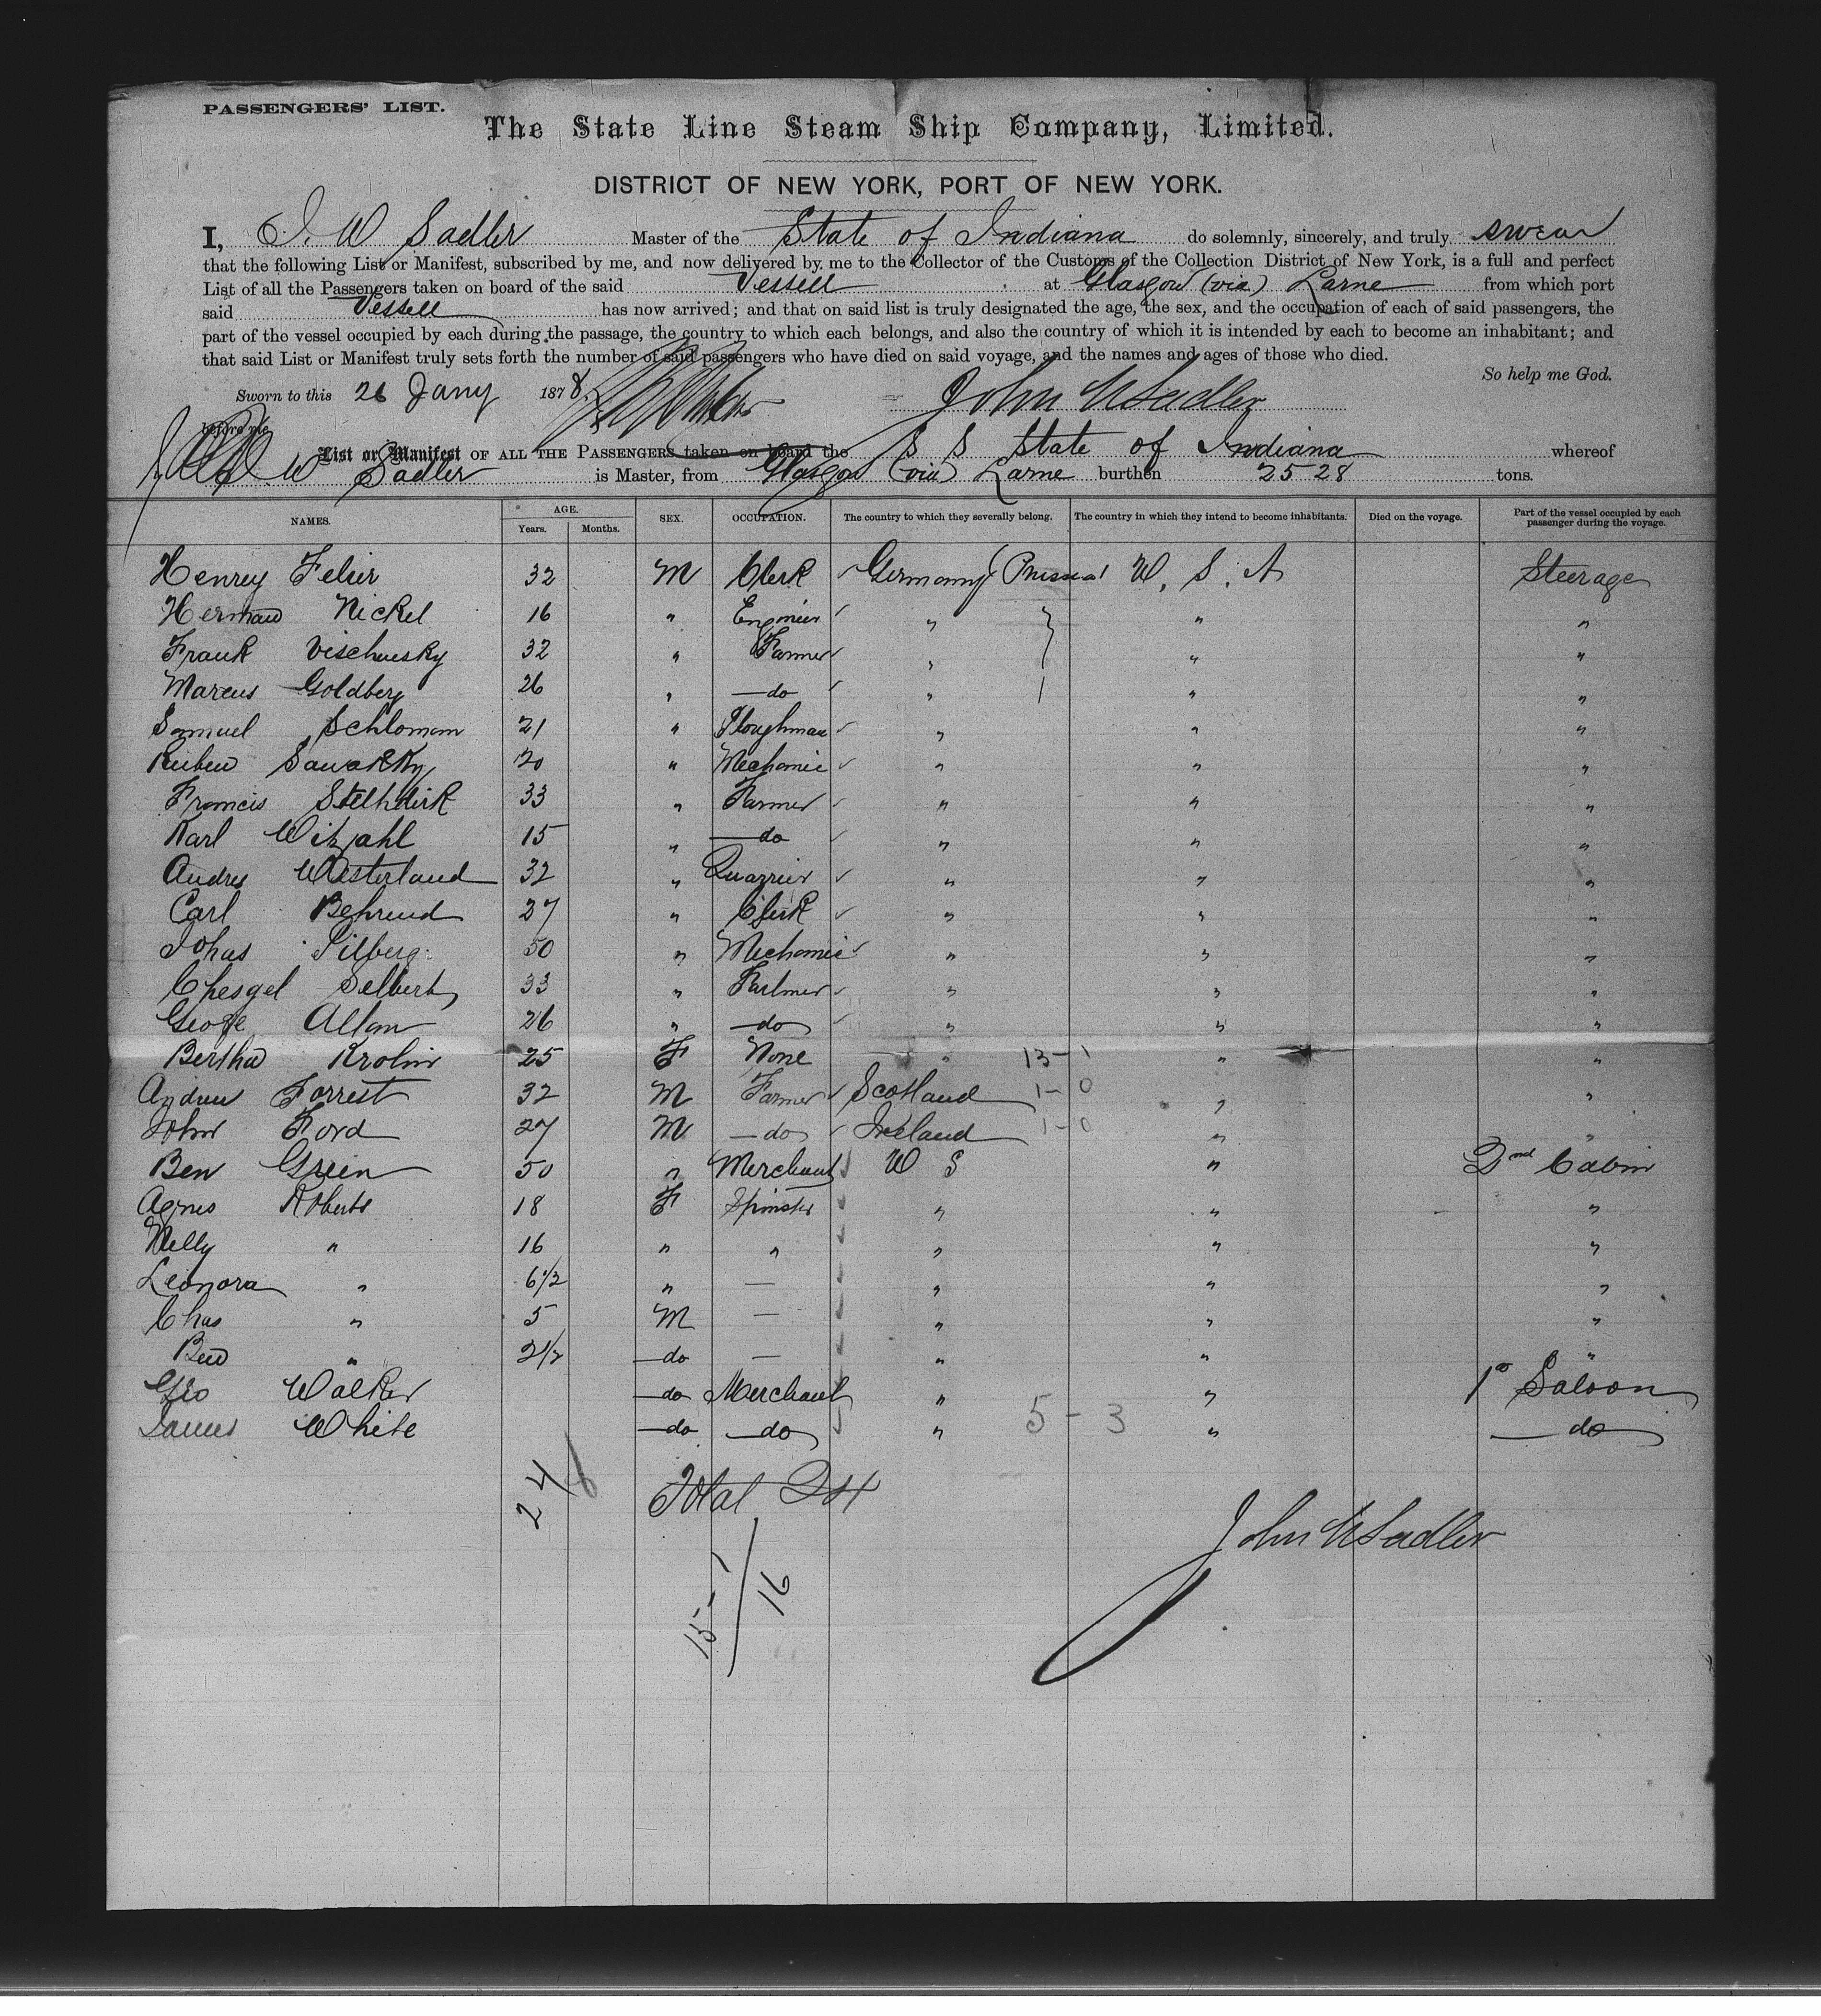 PASSENGERS' LIST.
The State Line Steam Ship Company, Limited.
DISTRICT OF NEW YORK, PORT OF NEW YORK.
I, J. W Sadler Master of the State of Indiana do solemnly, sincerely, and truly swear
that the following List or Manifest, subscribed by me, and now delivered by me to the Collector of the Customs of the Collection District of New York, is a full and perfect
List of all the Passengers taken on board of the said Vessell at Glasgow (via) Larne from which port
said Vessell has now arrived; and that on said list is truly designated the age, the sex, and the occupation of each of said passengers, the
part of the vessel occupied by each during the passage, the country to which each belongs, and also the country of which it is intended by each to become an inhabitant; and
that said List or Manifest truly sets forth the number of said passengers who have died on said voyage, and the names and ages of those who died.
So help me God.
Sworn to this 26 Jany 1878 John W Sadler
before me
List or Manifest OF ALL THE PASSENGERS taken on board the S S State of Indiana whereof
W Sadler is Master, from Glasgow (via) Larne burthen 2528 tons.
NAMES. AGE. Years. Months. SEX. OCCUPATION. The country to which they severally belong. The country in which they intend to become inhabitants. Died on the voyage. Part of the vessel occupied by each passenger during the voyage.
Henrey 32 M Clerk Germany (Prussia) U. S. A Steerage
Herman Nickel 16 " Engineer " " "
Frank 32 " Farmer " " "
Marcus Goldberg 26 " do " " "
Samuel Schlomam 21 " Ploughman " " "
Reuben 20 " Mechanic " " "
Francis 33 " Farmer " " "
Karl Witzahl 15 " do " " "
Andres Westerlaud 32 " Quarrier " " "
Carl Behrend 27 " Clerk " " "
50 " Mechanic " " "
33 " Farlmer " " "
Geoge Allan 26 " do " " "
Bertha Krolin 25 F None " 13-1 " "
Andrew Forrest 32 M Farmer Scotland 1-0 " "
John Ford 27 M do Ireland 1-0 " "
Ben Green 50 " Merchant U S " 2nd Cabin
Agnes Roberts 18 F Spinster " " "
Nelly " 16 " " " " "
Leonora " 6 1/2 " — " " "
Chas " 5 M — " " "
Ben " 2 1/2 do — " " "
Geo Walker do Merchant " " 1st Saloon
James White do do " 5-3 " do
24
Total 24
John W Sadler
15-1
16